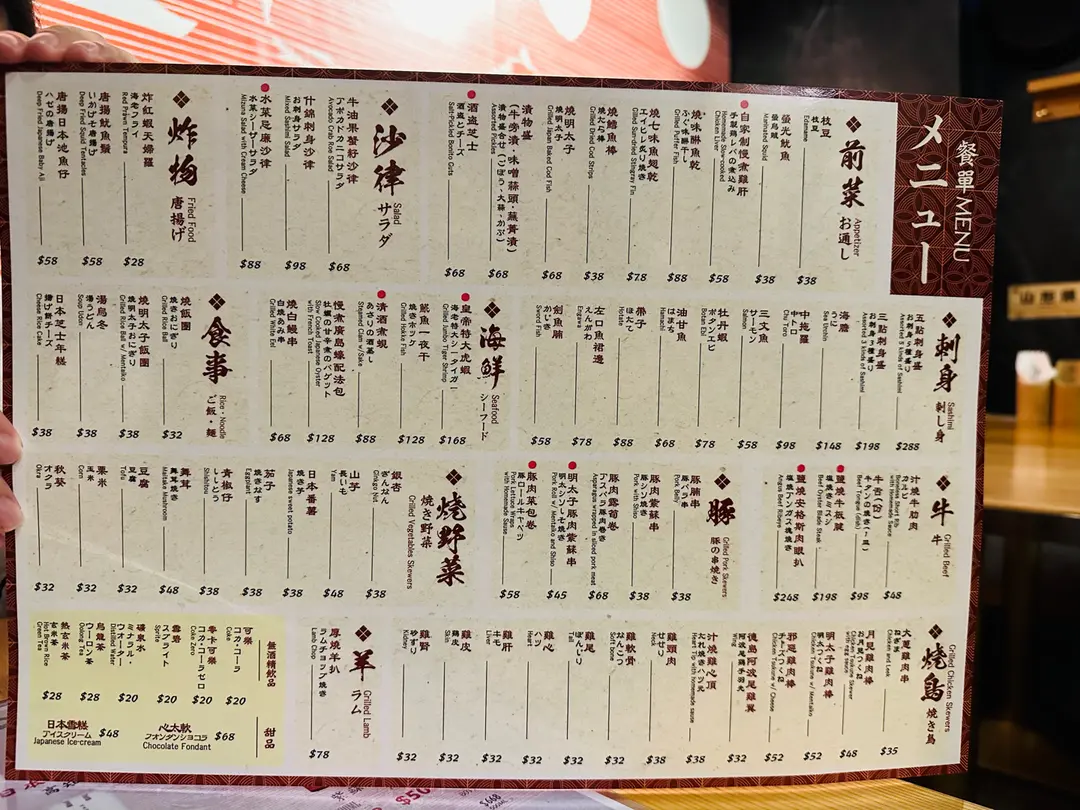 メニュー
餐單 MENU
前菜 お通し
Appetizer
枝豆
枝豆
Edamame
$38
螢光魷魚
Marinated Squid
$38
自家制慢煮雞肝
手製鶏レバの煮込み
Homemade Slow-cooked
Chicken Liver
$58
燒味醂魚乾
Grilled Puffer Fish
$88
燒七味魚翅乾
Grilled Sun-dried Stingray Fin
$78
燒鱈魚棒
Grilled Dried Cod Strips
$38
燒明太子
焼明太子
Grilled Japan Baked Cod Fish
$68
漬物盛
(牛蒡漬・味噌蒜頭・蕪菁漬)
Assorted Pickles
$68
酒盗芝士
酒盗チーズ
Salt-Pickled Bonito Guts
$68
沙律 サラダ
Salad
牛油果蟹籽沙律
アボカドカニコサラダ
Avocado Crab Rice Salad
$68
什錦刺身沙律
お刺身サラダ
Mixed Sashimi Salad
$98
水菜忌廉沙律
水菜シーザーサラダ
Mizuna Salad with Cream Cheese
$88
炸物 唐揚げ
Fried Food
炸紅蝦天婦羅
海老フライ
Red Prawn Tempura
$28
唐揚魷魚鬚
いかげそ唐揚げ
Deep Fried Squid Tentacles
$58
唐揚日本池魚仔
ハゼの唐揚げ
Deep Fried Japanese Baby Aji
$58
刺身 刺し身
Sashimi
五點刺身盛
お刺身5種盛り
Assorted 5 kinds of Sashimi
$288
三點刺身盛
お刺身3種盛り
Assorted 3 kinds of Sashimi
$198
海膽
うに
Sea Urchin
$148
中拖羅
中トロ
Chu Toro
$98
三文魚
サーモン
Salmon
$58
牡丹蝦
ボタンエビ
Botan Ebi
$78
油甘魚
はまち
Hamachi
$68
帶子
ほたて
Hotate
$88
左口魚裙邊
えんがわ
Engawa
$78
劍魚腩
Sword Fish
$58
海鮮 シーフード
Seafood
皇帝特大虎蝦
海老特大シータイガー
Grilled Jumbo Tiger Shrimp
$168
𩶘魚一夜干
Grilled Hake Fish
$128
清酒煮蜆
あさりの酒蒸し
Steamed Clam w/Sake
$88
慢煮廣島蠔配法包
Slow Cooked Japanese Oyster
with French Toast
$128
燒白鰻串
白焼あなご串
Grilled White Eel
$68
食事 ご飯・麺
Rice・Noodle
燒飯團
焼きおにぎり
Grilled Rice Ball
$32
燒明太子飯團
焼明太子おにぎり
Grilled Rice Ball w/ Mentaiko
$38
湯烏冬
湯うどん
Soup Udon
$38
日本芝士年糕
揚げ餅チーズ
Cheese Rice Cake
$38
牛 牛
Grilled Beef
汁燒牛肋肉
Boneless Short Rib
with Homemade Sauce
$48
牛舌(厚)
Beef Tongue (thick)
$98
鹽燒牛板腱
Beef Oyster Blade Steak
$198
鹽燒安格斯肉眼扒
Angus Beef Ribeye
$248
豚 豚の串焼き
Grilled Pork Skewers
豚腩串
Pork Belly
$38
豚肉紫蘇串
Pork with Shiso
$38
豚肉露筍卷
アスパラ豚肉巻き
Asparagus wrapped in sliced pork meat
$68
明太子豚肉紫蘇串
Pork Roll w/ Mentaiko and Shiso
$45
豚肉菜包卷
豚ロールキャベツ
Pork Lettuce Wraps
with Homemade Sauce
$58
燒野菜 焼き野菜
Grilled Vegetables Skewers
銀杏
ぎんなん
Ginkgo Nut
$38
山芋
長いも
Yam
$48
日本番薯
焼き芋
Japanese sweet potato
$38
茄子
焼きなす
Eggplant
$38
青椒仔
ししとう
Shishitou
$38
舞茸
舞茸焼き
Maitake Mushroom
$48
豆腐
豆腐
Tofu
$32
粟米
玉米
Corn
$32
秋葵
オクラ
Okra
$32
燒鳥 焼き鳥
Grilled Chicken Skewers
大蔥雞肉串
ねぎま
Chicken and Leek
$35
月見雞肉棒
Chicken Tsukune Skewer
with egg sauce
$48
明太子雞肉棒
Chicken Tsukune w/ Mentaiko
$52
邪惡雞肉棒
Chicken Tsukune w/ Cheese
$52
德島阿波尾雞翼
阿波尾鶏手羽先
Wing
$52
汁燒雞心頂
Heart Tip with homemade sauce
$38
雞頸肉
せせり
Neck
$38
雞軟骨
なんこつ
Soft bone
$32
雞尾
ぼんじり
Tail
$32
雞心
ハツ
Heart
$32
雞肝
キモ
Liver
$32
雞皮
Skin
$32
雞腎
砂ずり
Kidney
$32
羊 ラム
Grilled Lamb
厚燒羊扒
ラムチョップ焼き
Lamb Chop
$78
無酒精飲品
可樂
コカ・コーラ
Coke
$20
零卡可樂
コカ・コーラゼロ
Coke Zero
$20
雪碧
スプライト
Sprite
$20
礦泉水
ミネラル・
ウォーター
Distilled Water
$20
烏龍茶
ウーロン茶
Oolong Tea
$28
熱玄米茶
玄米茶
Hot Brown Rice
Green Tea
$28
甜品
心太軟
フォンダンショコラ
Chocolate Fondant
$68
日本雪糕
アイスクリーム
Japanese Ice-cream
$48